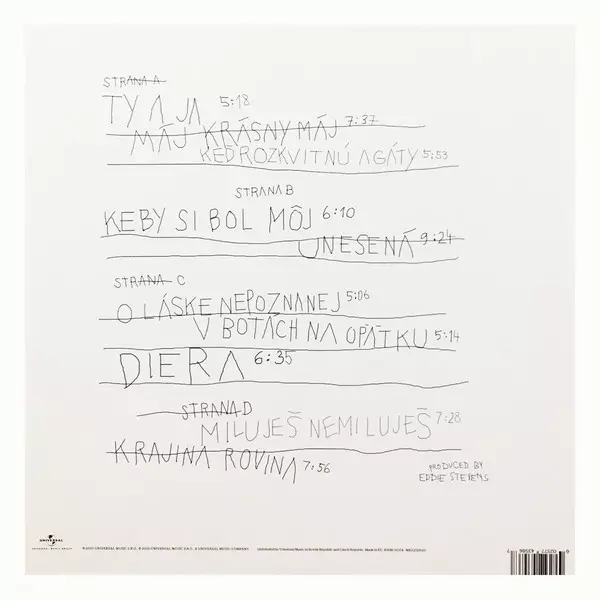 STRANA A
TY A JA 5:18
MÁJ KRÁSNY MÁJ 7:37
KEĎ ROZKVITNÚ AGÁTY 5:53
STRANA B
KEBY SI BOL MÔJ 6:10
UNESENÁ 9:24
STRANA C
O LÁSKE NEPOZNANEJ 5:06
V BOTÁCH NA OPÄTKU 5:14
DIERA 6:35
STRANA D
MILUJEŠ NEMILUJEŠ 7:28
KRAJINA ROVINA 7:56
PRODUCED BY
EDDIE STEVENS
UNIVERSAL
UNIVERSAL MUSIC GROUP